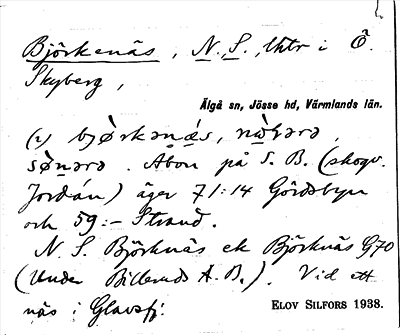 Björkenäs, N. S., lhtr i Ö.
Skyberg,
Älgå sn, Jösse hd, Värmlands län.
(2) bjørkənǽs, nòɹərə,
sǿnərə. Åbon på S. B. (skogv.
Jordán) äger 71:14 Gördsbyn
och 59:- Strand.
N. S. Björknäs ek Björknäs G70
(under Billeruds A. B.). Vid ett
näs i Glavsfj.
ELOV SILFORS 1938.